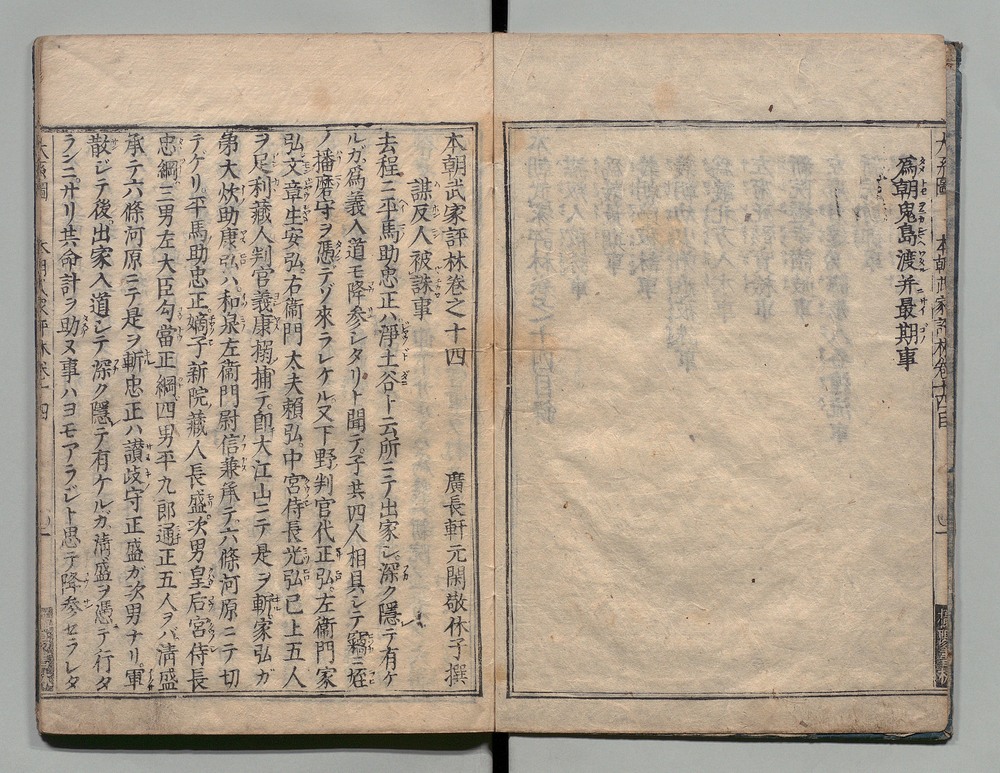 爲朝鬼島渡并最期事
本朝武家評林卷之十四
廣長軒元閑敬休子撰
謀反人被誅事
去程ニ平馬助忠正ハ淨土谷ト云所ニテ出家シ深ク隱テ有ケ
ルガ爲義入道モ降参シタリト聞テ子共四人相具シテ竊ニ姪
ノ播磨守ヲ憑テゾ來ラレケル又下野判官代正弘左衞門家
弘文章生安弘右衞門太夫賴弘中宮侍長光弘已上五人
ヲ足利藏人判官義康搦捕テ即大江山ニテ是ヲ斬家弘ガ
弟大炊助康弘ハ和泉左衞門尉信兼承テ六條河原ニテ切
テゲリ平馬助忠正嫡子新院藏人長盛次男皇后宮侍長
忠綱三男左大臣勾當正綱四男平九郎通正五人ヲバ淸盛
承テ六條河原ニテ是ヲ斬忠正ハ讃岐守正盛ガ次男ナリ軍
散ジテ後出家入道シテ深ク隱テ有ケルガ淸盛ヲ憑テ行タ
ランニサリ共命計ヲ助ヌ事ハヨモアラジト思テ降参セラレタ